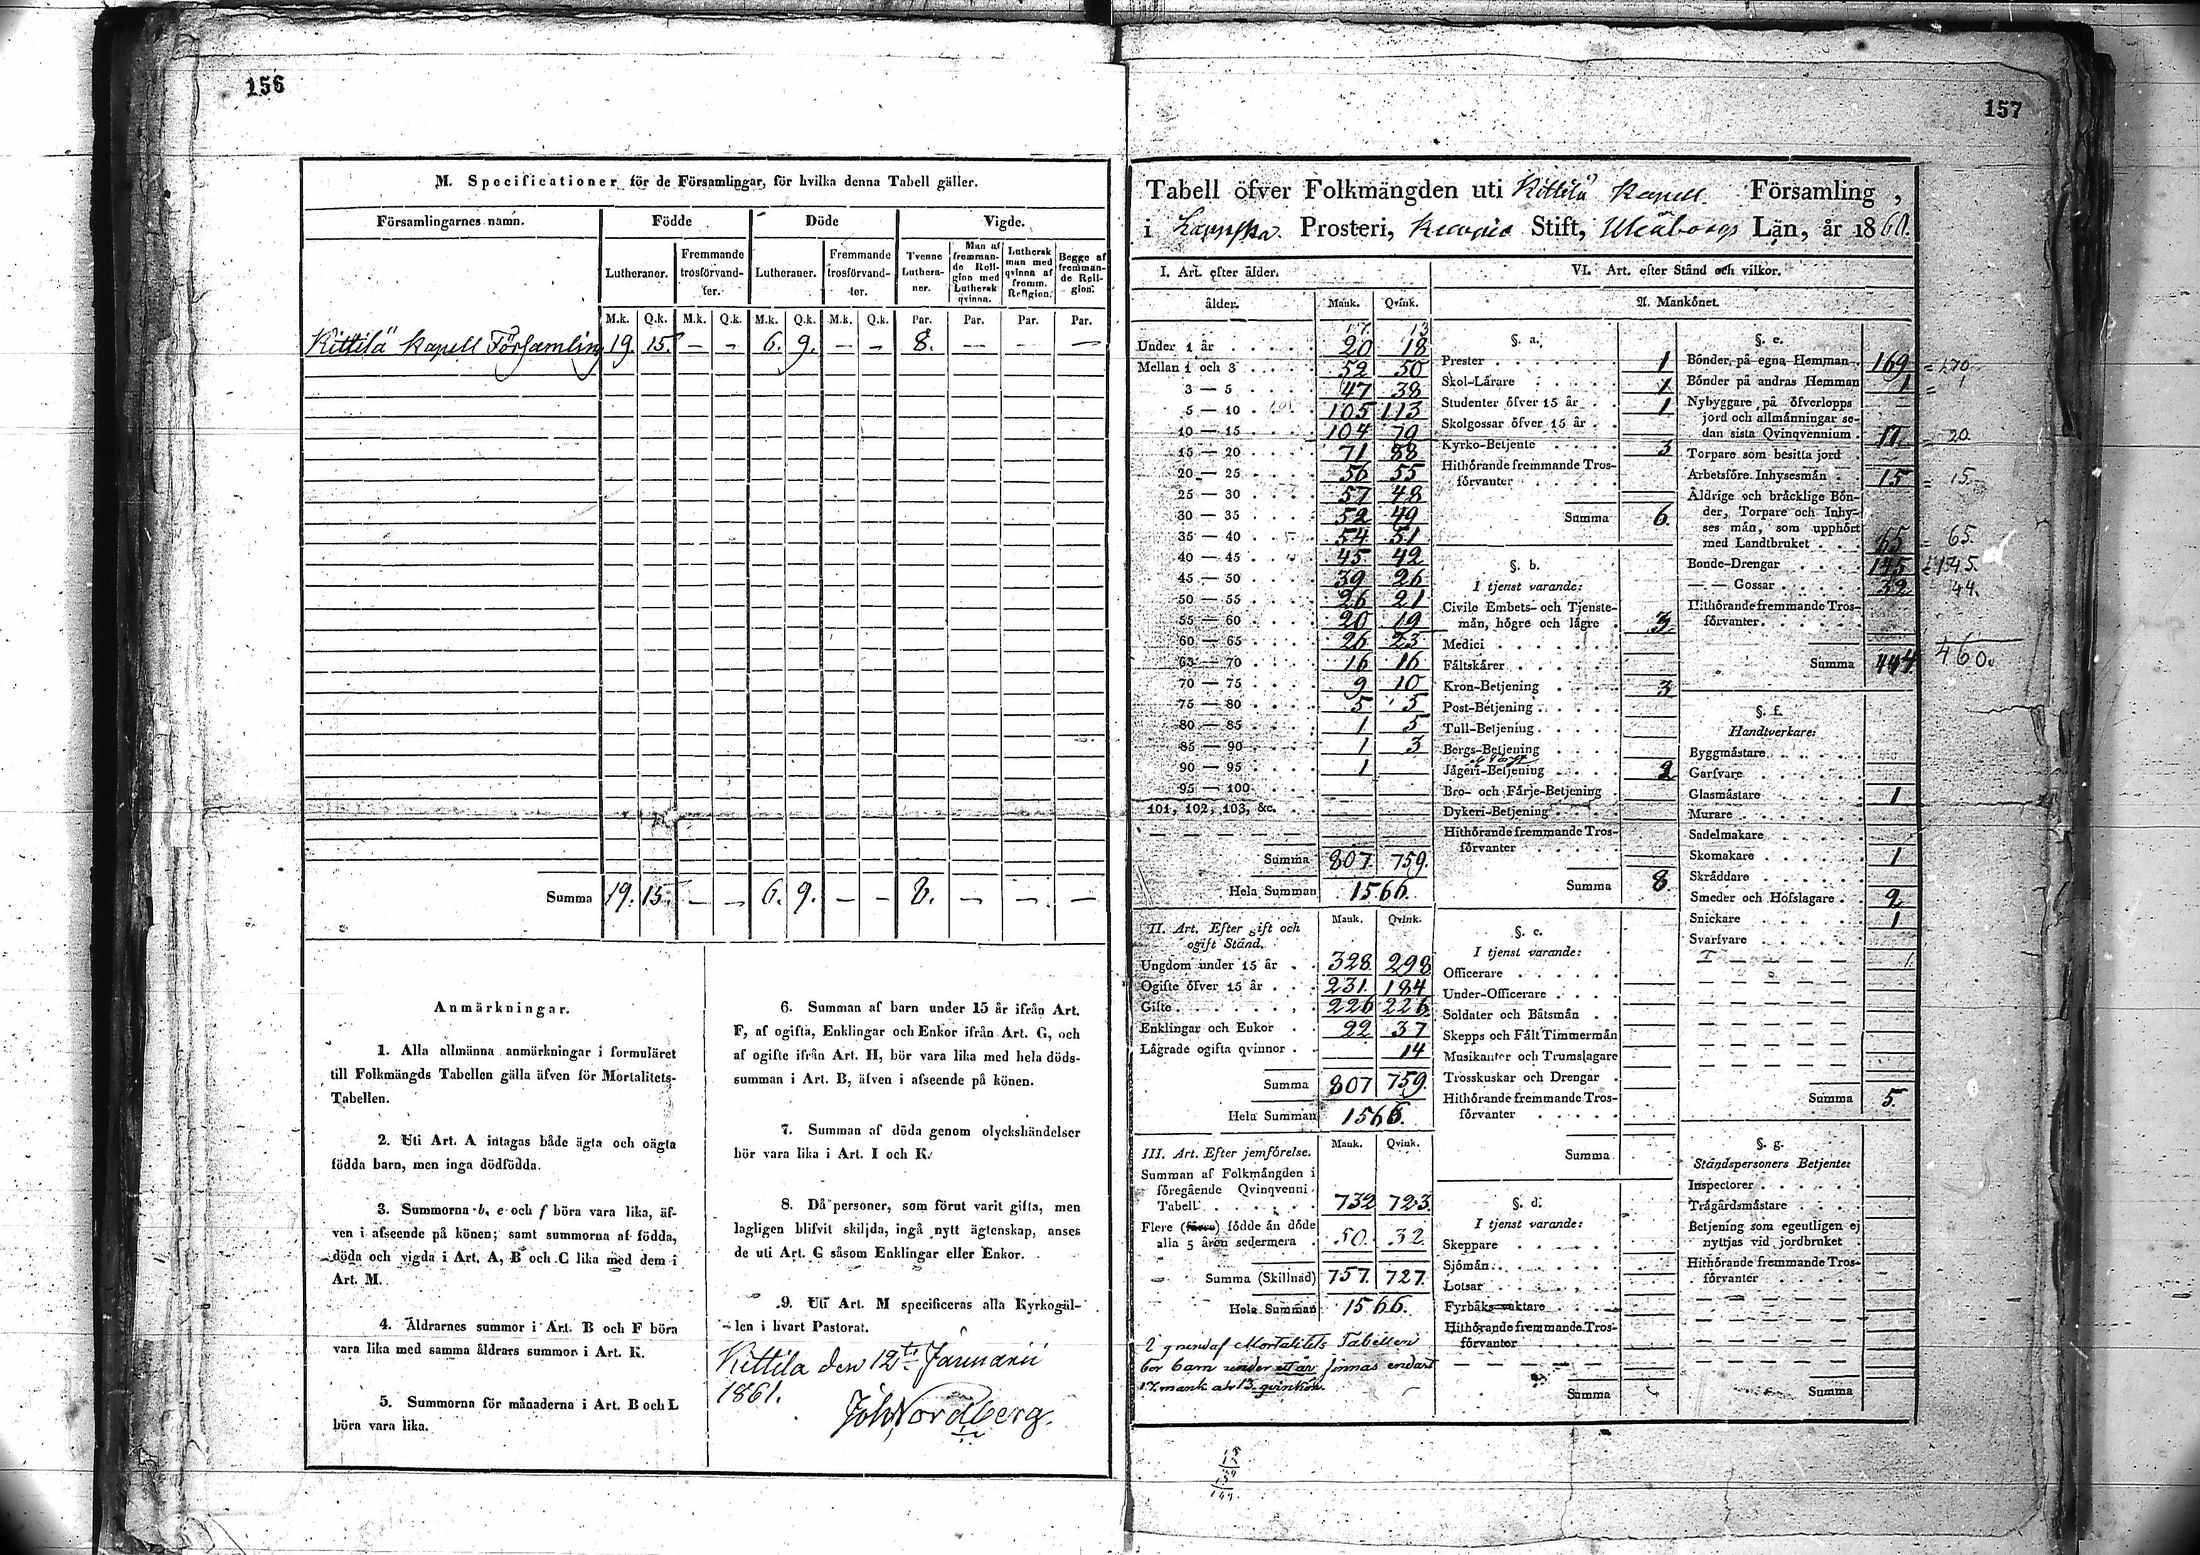 156
M. Specificationer för de Församlingar, för hvilka denna Tabell gäller.
Församlingarnes namn. Födde Döde Vigde.
Lutheraner. Fremmande trosförvandter. Lutheraner. Fremmande trosförvandter. Tvenne Lutheraner. Man af fremmande Religion med Luthersk qvinna. Luthersk man med qvinna af fremm. Religion. Begge af fremmande Religion.
M.k. Q.k. M.k. Q.k. M.k. Q.k. M.k. Q.k. Par. Par. Par. Par.
Kittilä Kapell Församling 19. 15. — — 6. 9. — — 8. — — —
Summa 19. 15. — — 6. 9. — — 8. — — —
Anmärkningar.
1. Alla allmänna anmärkningar i formuläret
till Folkmängds Tabellen gälla äfven för Mortalitets-
Tabellen.
2. Uti Art. A intagas både ägta och oägta
födda barn, men inga dödfödda.
3. Summorna b, e och f böra vara lika, äf-
ven i afseende på könen; samt summorna af födda,
döda och vigda i Art. A, B och C lika med dem i
Art. M.
4. Åldrarnes summor i Art. B och F böra
vara lika med samma åldrars summor i Art. K.
5. Summorna för månaderna i Art. B och L
böra vara lika.
6. Summan af barn under 15 år ifrån Art.
F, af ogifta, Enklingar och Enkor ifrån Art. G, och
af ogifte ifrån Art. H, bör vara lika med hela döds-
summan i Art. B, äfven i afseende på könen.
7. Summan af döda genom olyckshändelser
bör vara lika i Art. I och K.
8. Då personer, som förut varit gifta, men
lagligen blifvit skiljda, ingå nytt ägtenskap, anses
de uti Art. G såsom Enklingar eller Enkor.
9. Uti Art. M specificeras alla Kyrkogäl-
len i hvart Pastorat.
Kittila den 12te Januarii
1861.
Joh. Nordberg.
157
Tabell öfver Folkmängden uti Kittilä Kapell Församling,
i Lappska Prosteri, Kuopio Stift, Uleåborgs Län, år 1860.
I. Art. efter ålder.
ålder. Mank. Qvink.
17. 13
Under 1 år 20 18
Mellan 1 och 3 52 50
3 — 5 47 38
5 — 10 105 113
10 — 15 104 79
15 — 20 71 88
20 — 25 56 55
25 — 30 57 48
30 — 35 52 49
35 — 40 54 51
40 — 45 45 42
45 — 50 39 26
50 — 55 26 21
55 — 60 20 19
60 — 65 26 23
65 — 70 16 16
70 — 75 9 10
75 — 80 5 5
80 — 85 1 5
85 — 90 1 3
90 — 95 1
95 — 100
101, 102, 103, &c.
Summa 807 759.
Hela Summan 1566.
II. Art. Efter gift och ogift Stånd. Mank. Qvink.
Ungdom under 15 år 328 298
Ogifte öfver 15 år 231 184
Gifte 226 226
Enklingar och Enkor 22 37
Lägrade ogifta qvinnor 14
Summa 807 759.
Hela Summan 1566.
III. Art. Efter jemförelse. Mank. Qvink.
Summan af Folkmängden i
föregående Qvinqvenni
Tabell 732 723.
Flere (färre) födde än döde
alla 5 åren sedermera 50. 32.
Summa (Skillnad) 757. 727.
Hela Summan 1566.
Mortalitets Tabellen
bör barn under ett år finnas endast
17 mank och 13 qvinkön.
VI. Art. efter Stånd och vilkor.
A. Mankönet.
§. a.
Prester 1
Skol-Lärare 1
Studenter öfver 15 år 1
Skolgossar öfver 15 år
Kyrko-Betjente 3
Hithörande fremmande Tros-
förvanter
Summa 6.
§. b.
I tjenst varande:
Civile Embets- och Tjenste-
män, högre och lägre 3
Medici
Fältskärer
Kron-Betjening 3
Post-Betjening
Tull-Betjening
Bergs-Betjening
Jägeri-Betjening 2
Bro- och Färje-Betjening
Dykeri-Betjening
Hithörande fremmande Tros-
förvanter
Summa 8.
§. c.
I tjenst varande:
Officerare
Under-Officerare
Soldater och Båtsmän
Skepps och Fält Timmermän
Musikanter och Trumslagare
Trosskuskar och Drengar
Hithörande fremmande Tros-
förvanter
Summa
§. d.
I tjenst varande:
Skeppare
Sjömän
Lotsar
Fyrbåks-vaktare
Hithörande fremmande Tros-
förvanter
Summa
§. e.
Bönder på egna Hemman 169 = 170
Bönder på andras Hemman 1 = 1
Nybyggare på öfverlopps
jord och allmänningar se-
dan sista Qvinqvennium 17 = 20.
Torpare som besitta jord
Arbetsföre Inhysesmän 15 = 15.
Äldrige och bräcklige Bön-
der, Torpare och Inhy-
ses män, som upphört
med Landtbruket 65 = 65.
Bonde-Drengar 145 = 145.
— — Gossar 32 44.
Hithörande fremmande Tros-
förvanter
Summa 444 460.
§. f.
Handtverkare:
Byggmästare
Garfvare
Glasmästare 1
Murare
Sadelmakare
Skomakare 1
Skräddare
Smeder och Hofslagare 2
Snickare 1
Svarfvare
Summa 5.
§. g.
Ståndspersoners Betjente:
Inspectorer
Trägårdsmästare
Betjening som egentligen ej
nyttjas vid jordbruket
Hithörande fremmande Tros-
förvanter
Summa